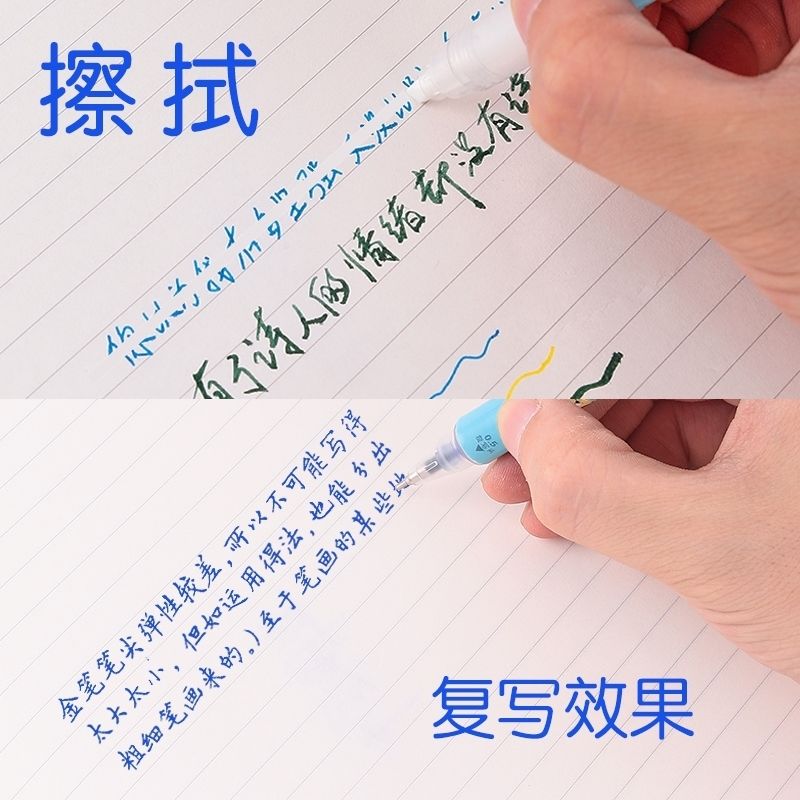 擦拭
有了诗人的情绪却没有诗
0.5
金笔笔尖弹性较差，所以不可能写得
太大太小，但如运用得法，也能分出
粗细笔画来的。）至于笔画的某些地
复写效果